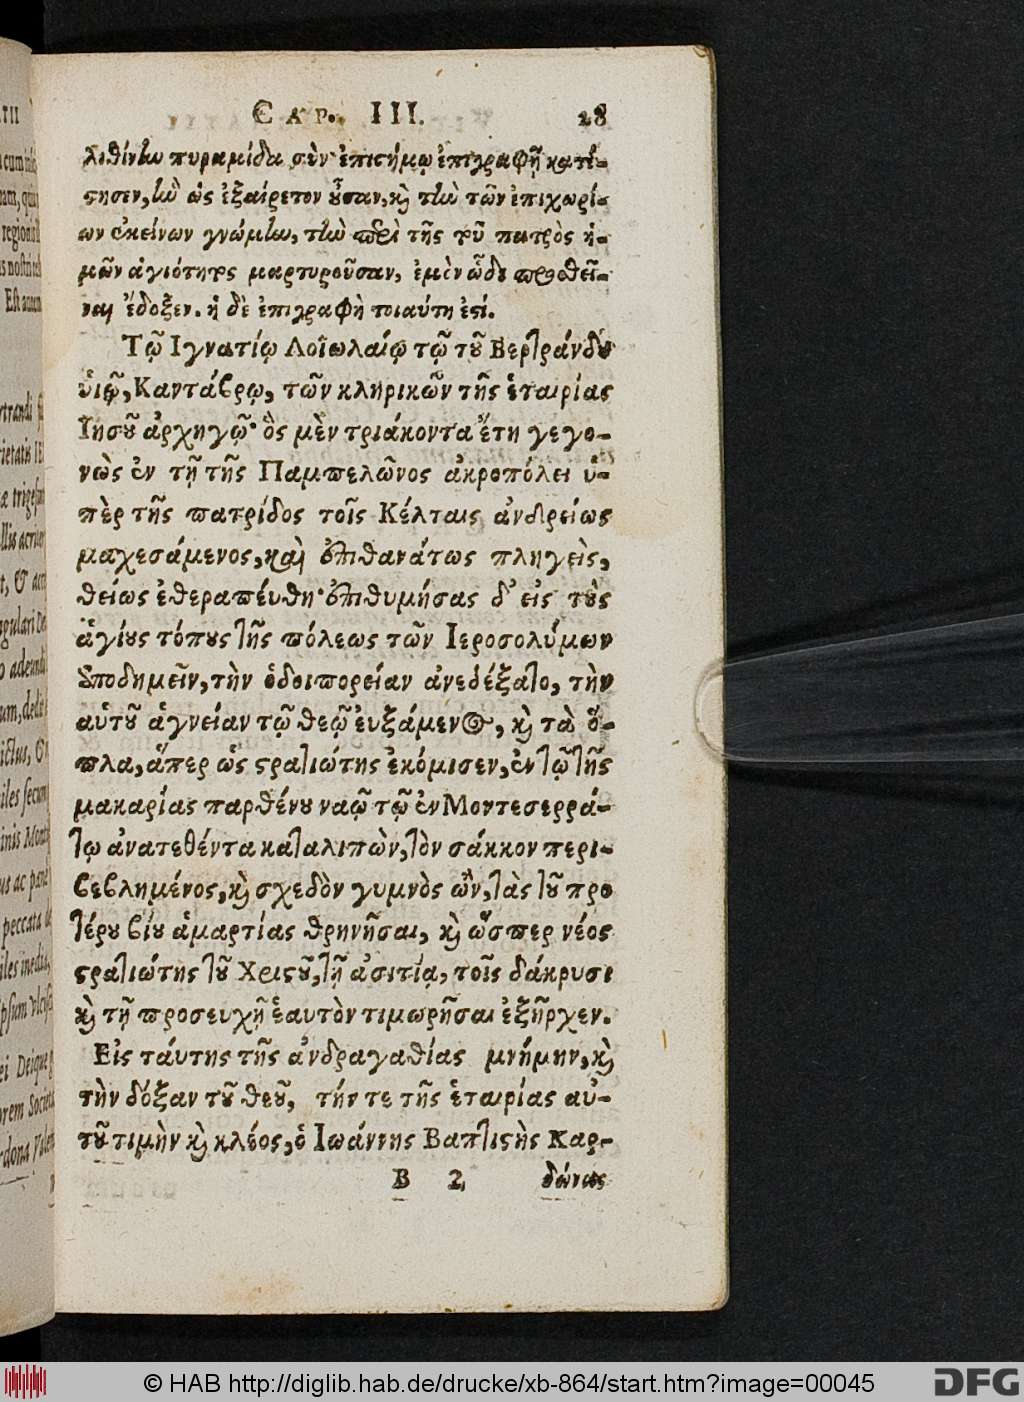 CAP. III. 28
λιθίνlω πυραμίδα σὺν ἐπιςήμῳ ἐπιγραφῇ κατέ-
ςησεν, lὼ ὡς ἐξαίρετον οὖσαν, κὶ τlὼ τῶν ἐπιχωρί-
ων ἐκείνων γνώμlω, τlὼ περὶ τῆς τοῦ πατρὸς ἡ-
μῶν ἁγιότητος μαρτυροῦσαν, ἐμὲν ὧδε προςθεῖ-
ναι ἔδοξεν. ἡ δὲ ἐπιγραφὴ τοιαύτη ἐςί.
Τῷ Ιγνατίῳ Λοϊωλαίῳ τῷ τοῦ Βερτράνδου
ὑιῷ, Καντάβρῳ, τῶν κληρικῶν τῆς ἑταιρίας
Ιησοῦ ἀρχηγῷ· ὃς μὲν τριάκοντα ἔτη γεγο-
νὼς ἐν τῇ τῆς Παμπελῶνος ἀκροπόλει ὑ-
πὲρ τῆς πατρίδος τοῖς Κέλταις ἀνδρείως
μαχεσάμενος, καὶ ἐπιθανάτως πληγεὶς,
θείως ἐθεραπέυθη· ἐπιθυμήσας δ' εἰς τοὺς
ἁγίους τόπους τῆς πόλεως τῶν Ιεροσολύμων
ἀποδημεῖν, τὴν ὁδοιπορείαν ἀνεδέξατο, τὴν
αὑτοῦ ἁγνείαν τῷ θεῷ ἐυξάμενος, κὶ τὰ ὅ-
πλα, ἅπερ ὡς ςρατιώτης ἐκόμισεν, ἐν τῷ τῆς
μακαρίας παρθένου ναῷ τῷ ἐν Μοντεσερρά-
τῳ ἀνατεθέντα καταλιπὼν, τὸν σάκκον περι-
βεβλημένος, κὶ σχεδὸν γυμνὸς ὢν, τὰς τοῦ προ
τέρου βίου ἁμαρτίας θρηνῆσαι, κὶ ὥσπερ νέος
ςρατιώτης τοῦ Χριςοῦ, τῇ ἀσιτίᾳ, τοῖς δάκρυσι
κὶ τῇ προσευχῇ ἑαυτὸν τιμωρῆσαι ἐξῆρχεν.
Εἰς τάυτης τῆς ἀνδραγαθίας μνήμην, κὶ
τὴν δόξαν τοῦ θεοῦ, τήν τε τῆς ἑταιρίας αὐ-
τοῦ τιμὴν κὶ κλέος, ὁ Ιωάννης Βαπτιςὴς Καρ-
B 2 δώνας
© HAB http://diglib.hab.de/drucke/xb-864/start.htm?image=00045
DFG